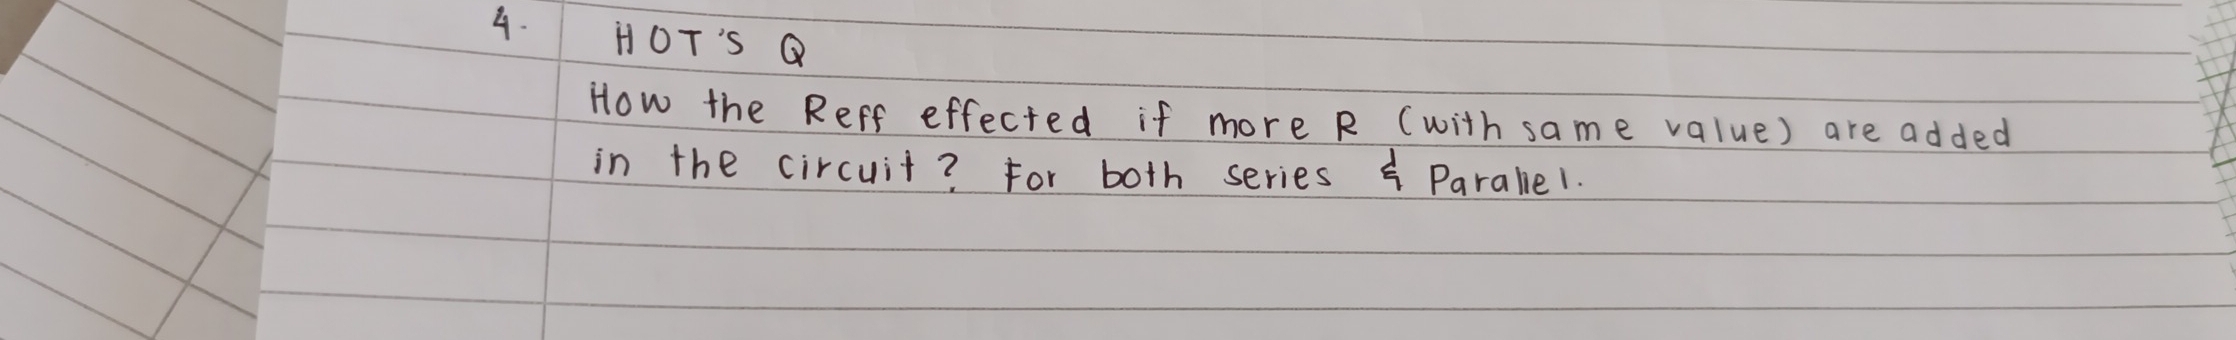 4.
HOT'S Q
How the Reff effected if more R (with same value) are added
in the circuit? For both series & Parallel.